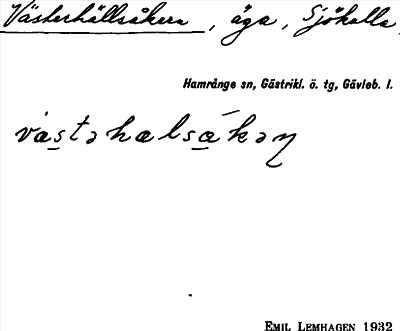 Västerhällsåkern, äga, Sjökalla,
Hamrånge sn, Gästrikl. ö. tg, Gävleb. l.
västəhalsákəη
EMIL LEMHAGEN 1932